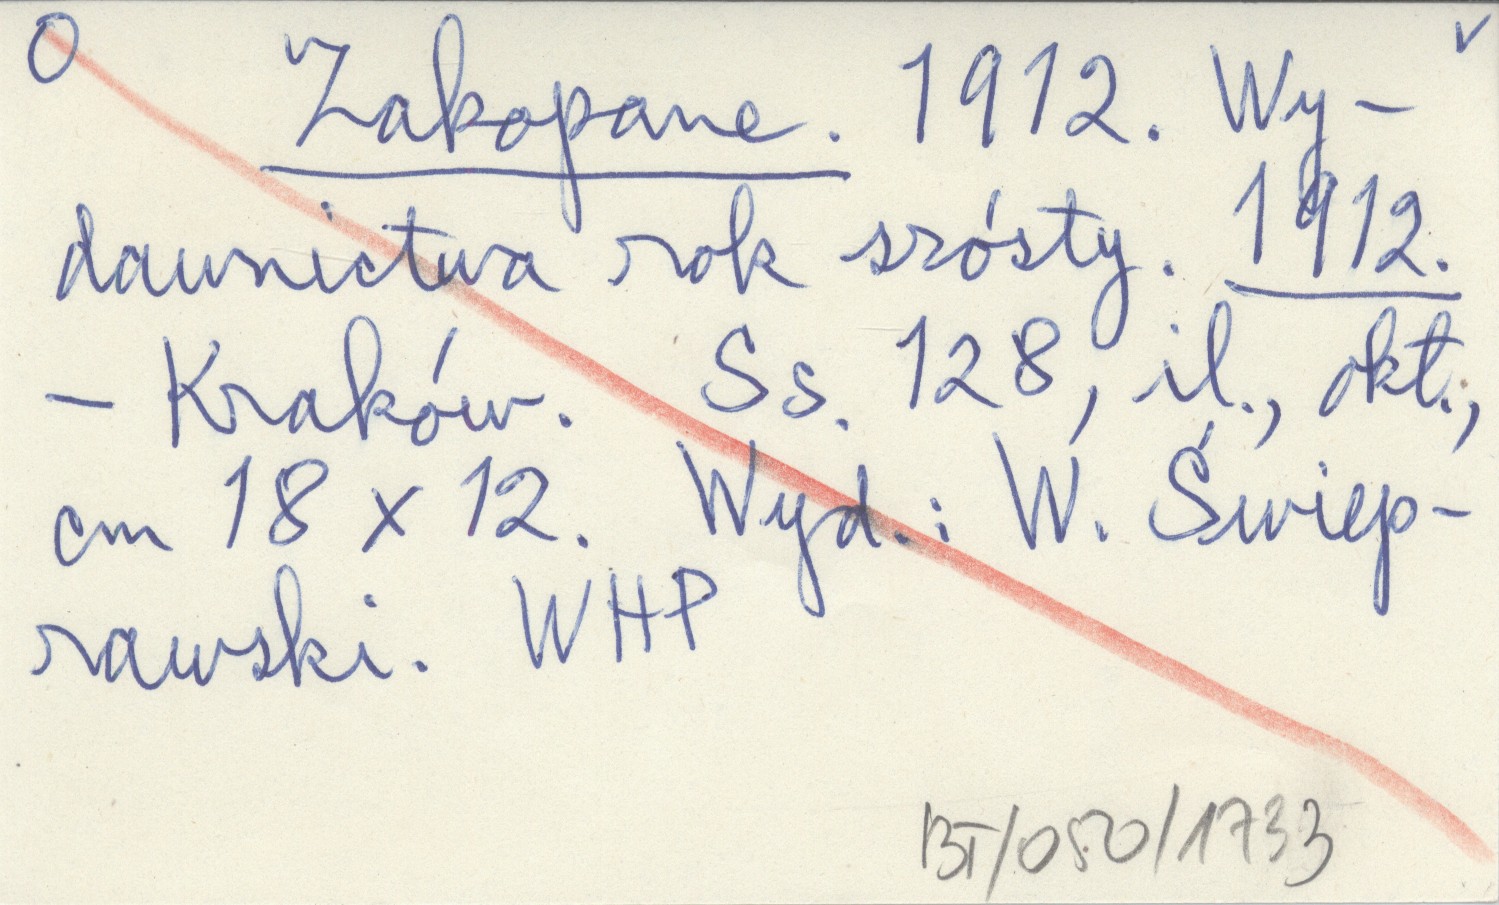 O Zakopane. 1912. Wy- v
dawnictwa rok szósty. 1912.
- Kraków. Ss. 128, il., okł.,
cm 18 x 12. Wyd.: W. Świep-
rawski. WHP
BT/050/1733